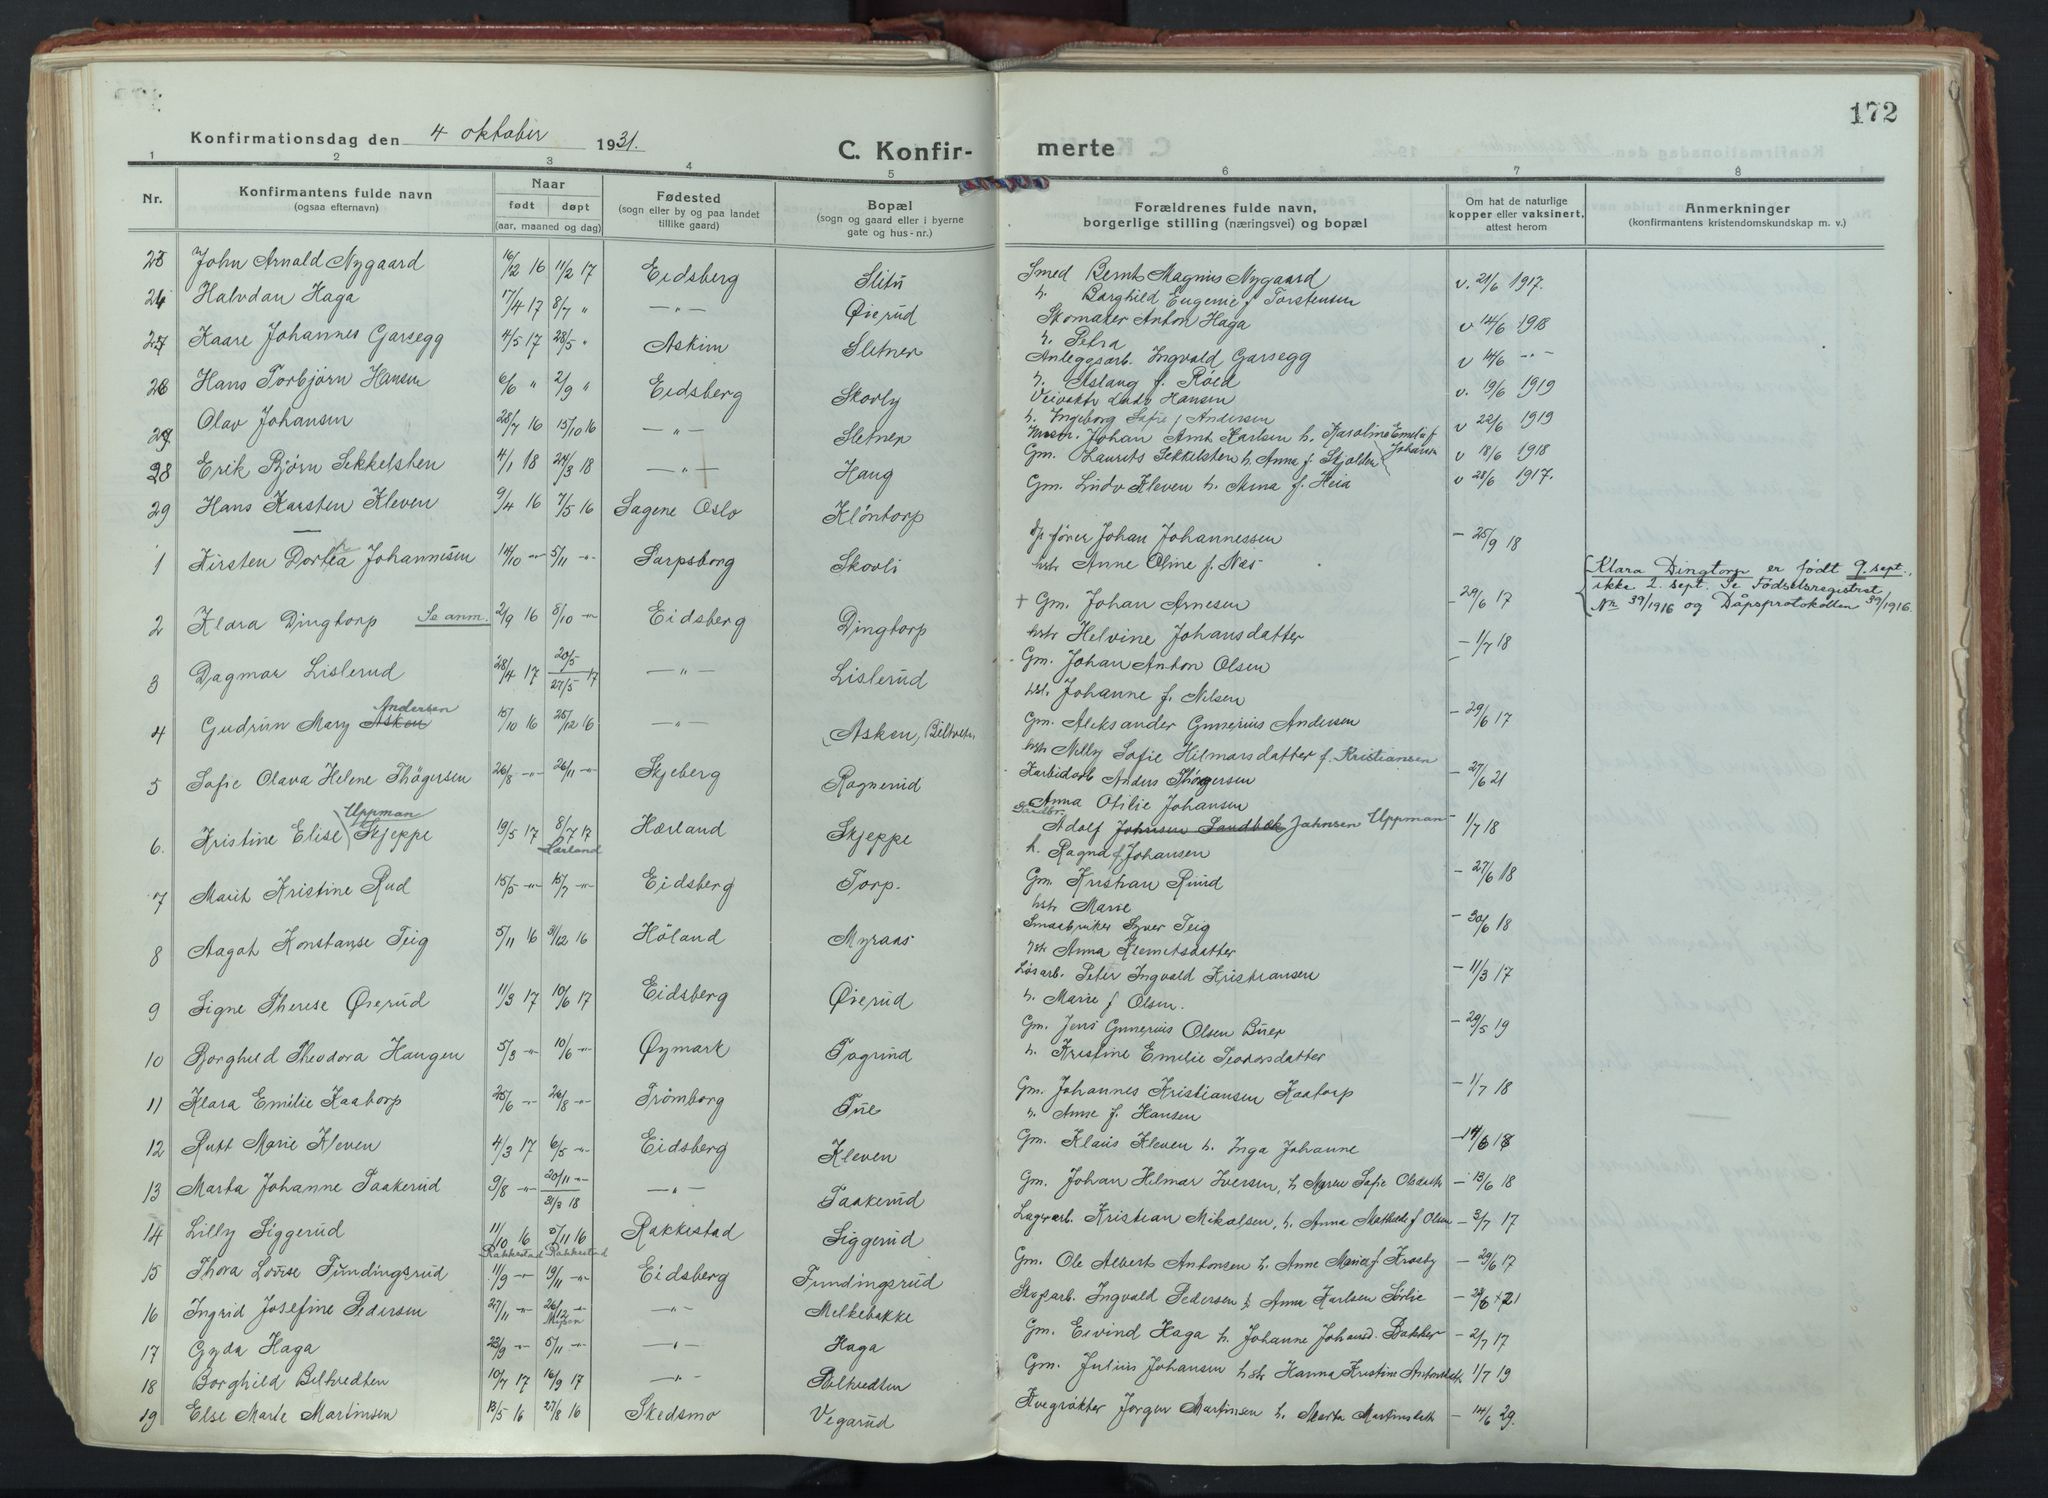 172
Konfirmationsdag den 4 oktober 1931.
C. Konfir-
merte
1 2 3 4 5 6 7 8
Nr.
Konfirmantens fulde navn
(ogsaa efternavn)
Naar
født døpt
(aar, maaned og dag)
Fødested
(sogn eller by og paa landet
tillike gaard)
Bopæl
(sogn og gaard eller i byerne
gate og hus-nr.)
Forældrenes fulde navn,
borgerlige stilling (næringsvei) og bopæl
Om hat de naturlige
kopper eller vaksinert,
attest herom
Anmerkninger
(konfirmantens kristendomskundskap m. v.)
John Arnald Nygaard 16/12 16 11/2 17 Eidsberg Slitu
Smed Bernt Magnus Nygaard v. 21/6 1917.
h. Borghild Eugenie f. Torstensen
Halvdan Haga 17/4 17 8/7 " —"— Øierud
Skomaker Anton Haga v 14/6 1918
h. Petra
Kaare Johannes Garsegg 4/5 17 28/5 " Askim Sletner
Anleggsarb. Ingvald Garsegg v 14/6 -"-
h. Aslaug f. Røed
Hans Torbjørn Hansen 6/6 " 2/9 " Eidsberg Skorly
Veivokter Ludv Hansen v. 19/6 1919
h. Ingeborg Sofie f Andersen
Olav Johansen 28/7 16 15/10 16 —"— Sletner
Johan Arnt Karlsen h. Karoline Emelie f Johansen v 22/6 1919
28 Erik Bjørn Sekkelsten 4/1 18 24/3 18 —"— Haug
Gm. Laurits Sekkelsten h. Anna f. Skjolden v 18/6 1918
29 Hans Karsten Kleven 9/4 16 7/5 16 Sagene Oslo Kløntorp
Gm. Ludv Kleven h. Anna f. Heia v 28/6 1917.
1 Kirsten Dortea Johannesen 14/10 -"- 5/11 -"- Sarpsborg Skovli
fører Johan Johannessen - 25/9 18
hstr Anne Oline f. Næs
2 Klara Dingtorp Se anm. 2/9 16 8/10 -"- Eidsberg Dingtorp
+ Gm. Johan Arnesen - 29/6 17
hstr Helvine Johansdatter
Klara Dingtorp er født 9. sept.,
ikke 2. sept. Se Fødselsregistret
Nr 39/1916 og Dåpsprotokollen 39/1916.
3 Dagmar Lislerud 28/4 17 20/5 27/5 17 —"— Lislerud
Gm. Johan Anton Olsen - 1/7 18
hst. Johanne f. Nilsen
4 Gudrun Mary Asken Andersen 15/10 16 25/12 16 —"— Asken, Biltvet
Gm. Aleksander Gunerius Andersen - 29/6 17
hstr Nelly Sofie Hilmarsdatter f. Kristiansen
5 Sofie Olava Helene Thøgersen 26/8 -"- 26/11 -"- Skjeberg Ragnerud
Karbidarb Anders Thøgersen - 27/6 21
Anna Otilie Johansen
6. Kristine Elise Uppman Skjeppe 19/5 17 8/7 17 Hærland Hærland Skjeppe
Adolf Johnsen Sandbæk Jahnsen Uppman - 1/7 18
h. Ragna f Johansen
7 Marit Kristine Rud 15/5 -"- 15/7 -"- Eidsberg Torp.
Gm. Kristian Ruud - 27/6 18
hstr Marie
8 Aagot Konstanse Teig 5/11 16 31/12 16 Høland Myraas
Smaabruker Syver Teig - 30/6 18
hstr Anna Klemetsdatter
9 Signe Therese Øierud 11/3 17 10/6 17 Eidsberg Øierud
Løsarb. Peter Ingvald Kristiansen - 11/3 17
h. Marie f Olsen.
10 Borghild Theodora Haugen 5/3 -"- 10/6 -"- Øymark Togrund
Gm. Jens Gunerius Olsen Buer - 29/5 19
h. Kristine Emilie Teodorsdatter
11 Klara Emilie Kaatorp 25/6 -"- 26/8 -"- Trømborg Tue
Gm. Johannes Kristiansen Kaatorp - 1/7 18
h. Anne f. Hansen
12 Rutt Marie Kleven 4/3 17 6/5 -"- Eidsberg Kleven
Gm. Klaus Kleven h. Inga Johanne - 14/6 18
13 Marta Johanne Taakerud 9/8 -"- 20/11 -"- 31/3 18 —"— Taakerud
Gm. Johan Hilmar Iversen, h Maren Sofie Olsdatr - 13/6 18
14 Lilly Siggerud 11/10 16 5/11 16 Rakkestad Rakkestad Rakkestad Siggerud
Lagerarb. Kristian Mikalsen, h. Anna Mathilde f Olsen - 3/7 17
15 Thora Lovise Fundingsrud 11/9 -"- 19/11 -"- Eidsberg Fundingsrud
Gm. Ole Albert Antonsen h. Anne Marie f Krosby - 29/6 17
16 Ingrid Josefine Pedersen 27/11 -"- 26/12 -"- Mysen —"— Melkebakke
Skogsarb. Ingvald Pedersen h Anna Karlsen Sørlie
17 Gyda Haga 23/9 -"- 5/11 -"- —"— Haga
Gm. Eivind Haga h. Johanne Johansd. Bakker - 2/7 17
18 Borghild Biltvedten 10/7 17 16/9 17 —"— Biltvedten
Gm. Julius Johansen hstr Hanna Kristine Antonsdatr 1/7 19
19 Else Marie Martinsen 13/5 16 27/8 16 Skedsmo Vegarud
Kvegrøkter Jørgen Martinsen h. Marta Martinsdatr - 14/6 29.